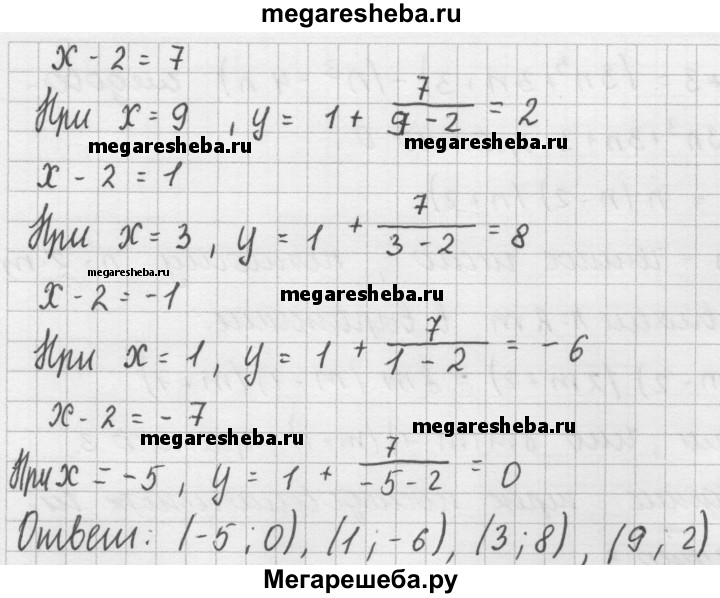 megaresheba.ru
x - 2 = 7
При x = 9 , y = 1 + 7/(9 - 2) = 2
megaresheba.ru megaresheba.ru
x - 2 = 1
При x = 3 , y = 1 + 7/(3 - 2) = 8
megaresheba.ru
x - 2 = -1 megaresheba.ru
При x = 1 , y = 1 + 7/(1 - 2) = -6
x - 2 = -7 megaresheba.ru
megaresheba.ru
При x = -5 , y = 1 + 7/(-5 - 2) = 0
Ответ: (-5 ; 0), (1 ; -6), (3 ; 8) , (9 ; 2)
Мегарешеба.ру